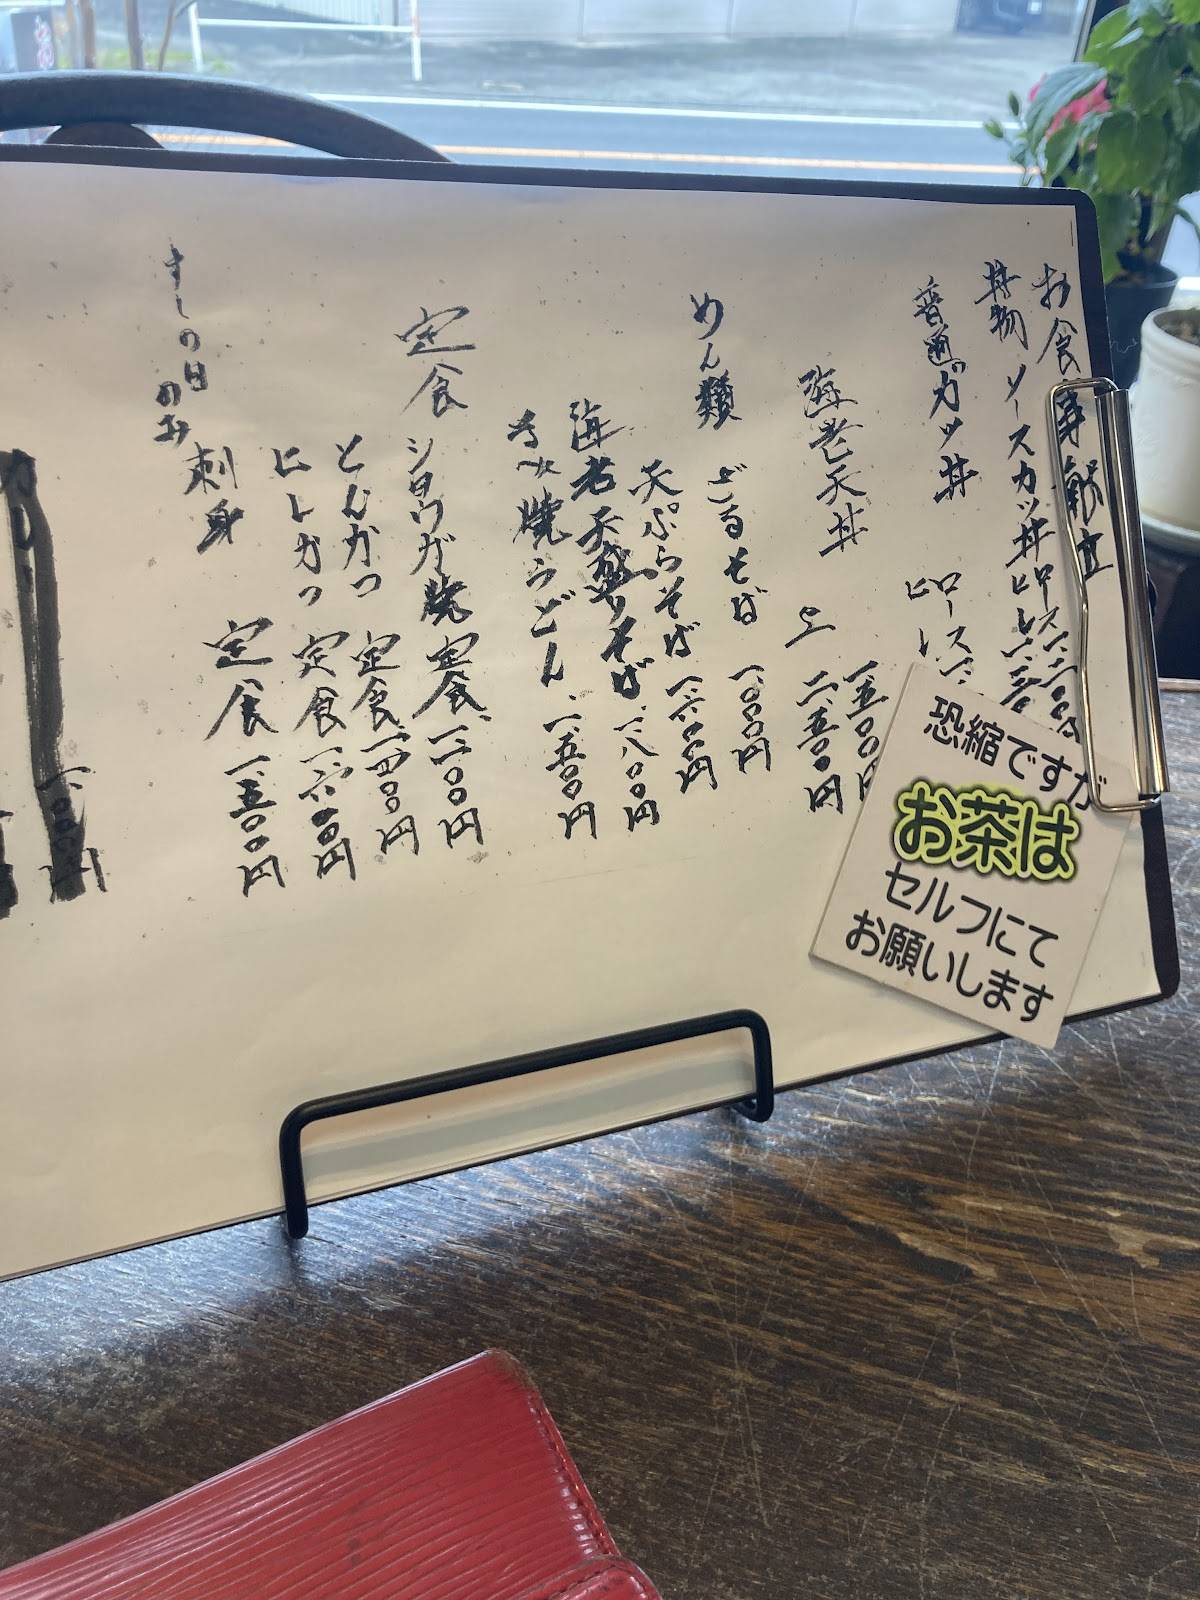 お食事献立
丼物 ソースカツ丼 ロース 一、二〇〇
ヒレ 一、三
普通カツ丼 ロース 一、
ヒレ
海老天丼 一、五〇〇円
上 二、五〇〇円
めん類
ざるそば 一、〇〇〇円
天ぷらそば 一、六〇〇円
海老天盛りそば、一、八〇〇円
焼うどん、一、五〇〇円
定食
ショウガ焼定食、一、二〇〇円
とんかつ定食、一、四〇〇円
ヒレかつ定食 一、六〇〇円
すしの日のみ
刺身定食 一、五〇〇円
恐縮ですが
お茶は
セルフにて
お願いします